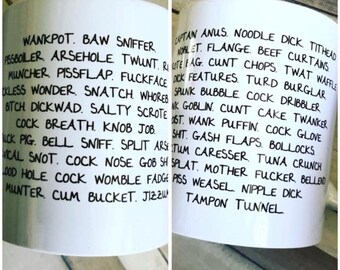 WANKPOT. BAW SNIFFER
PISSBOILER ARSEHOLE TWUNT. R
MUNCHER. PISSFLAP. FUCKFACE
CKLESS WONDER. SNATCH. WHOREB
BITCH. DICKWAD. SALTY SCROTE
COCK BREATH. KNOB JOB.
UCK PIG. BELL SNIFF. SPLIT ARSE
VICAL SNOT. COCK NOSE. GOB SH
LOOD HOLE COCK WOMBLE FADGE
MUNTER CUM BUCKET. JIZZU
APTAIN ANUS. NOODLE DICK. TITHEAD
FLANGE BEEF CURTAINS
BAG. CUNT CHOPS. TWAT WAFFLE
DICK FEATURES. TURD BURGLAR
SPUNK BUBBLE COCK DRIBBLER
NK GOBLIN. CUNT CAKE TWANKER
WANK PUFFIN. COCK GLOVE
SHT. GASH FLAPS. BOLLOCKS
TUM CARESSER. TUNA CRUNCH
SPLAT. MOTHER FUCKER BELLEN
PISS WEASEL. NIPPLE DICK
TAMPON TUNNEL.